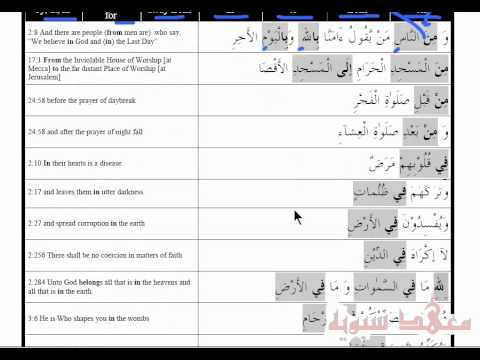 for
2:8 And there are people (from men are) who say, "We believe in God and (in) the Last Day"
وَ مِنَ النَّاسِ مَنْ يَّقُولُ ءَامَنَّا بِاللهِ وَبِالْيَوْمِ الْأَخِرِ
17:1 From the Inviolable House of Worship [at Mecca] to the far distant Place of Worship [at Jerusalem]
مِنَ الْمَسْجِدِ الْحَرَامِ إِلَى الْمَسْجِدِ الْأَقْصَا
24:58 before the prayer of daybreak
مِنْ قَبْلِ صَلَوٰةِ الْفَجْرِ
24:58 and after the prayer of night fall
وَ مِنْ بَعْدِ صَلَوٰةِ الْعِشَآءِ
2:10 In their hearts is a disease.
فِي قُلُوْبِهِمْ مَرَضٌ
2:17 and leaves them in utter darkness
وَتَرَكَهُمْ فِي ظُلُمَاتٍ
2:27 and spread corruption in the earth
وَيُفْسِدُوْنَ فِي الْأَرْضِ
2:256 There shall be no coercion in matters of faith
لَآ إِكْرَاهَ فِي الدِّيْنِ
2:284 Unto God belongs all that is in the heavens and all that is in the earth.
لِلّٰهِ مَا فِي السَّمٰوَاتِ وَ مَا فِي الْأَرْضِ
3:6 He is Who shapes you in the wombs